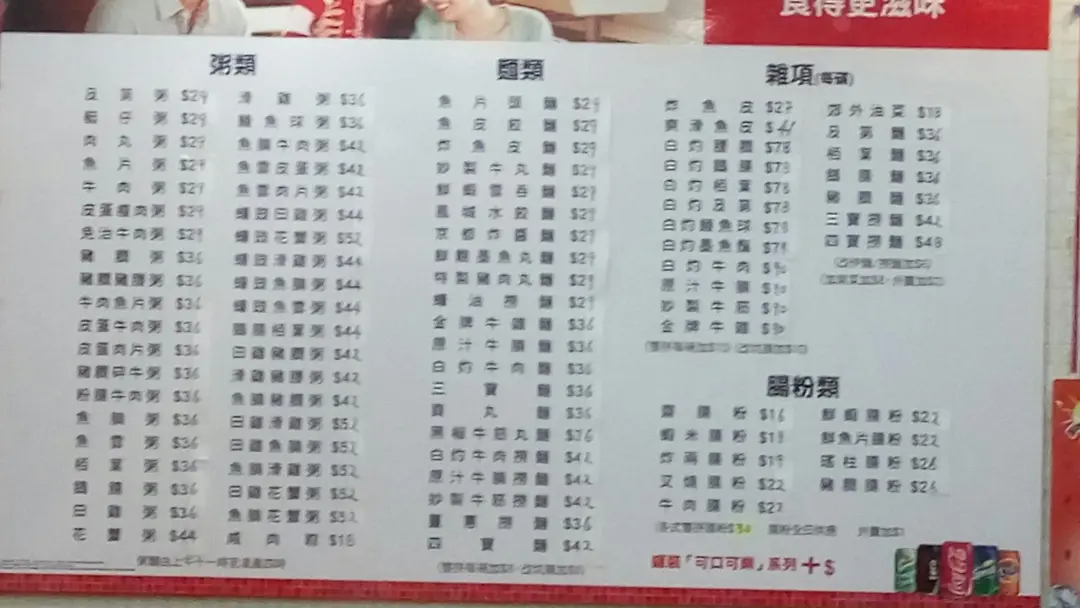 食得更滋味
粥類
及第粥 $29
艇仔粥 $29
肉丸粥 $29
魚片粥 $29
牛肉粥 $29
皮蛋瘦肉粥 $29
免治牛肉粥 $29
豬膶粥 $36
豬膶豬腰粥 $36
牛肉魚片粥 $36
皮蛋牛肉粥 $36
皮蛋肉片粥 $36
豬膶碎牛粥 $36
粉腸牛肉粥 $36
魚腩粥 $36
魚雲粥 $36
栢葉粥 $36
粥 $36
田雞粥 $36
花蟹粥 $44
滑雞粥 $36
鯪魚球粥 $36
魚腩牛肉粥 $42
魚雲皮蛋粥 $42
魚雲肉片粥 $42
蠔豉田雞粥 $44
蠔豉花蟹粥 $52
蠔豉滑雞粥 $44
蠔豉魚腩粥 $44
蠔豉魚雲粥 $44
栢葉粥 $44
田雞豬膶粥 $42
滑雞豬膶粥 $42
魚腩豬膶粥 $42
田雞滑雞粥 $52
田雞魚腩粥 $52
魚腩滑雞粥 $52
田雞花蟹粥 $52
魚腩花蟹粥 $52
咸肉粽 $18
粥類由上午十一時至凌晨四時
麵類
魚片頭麵 $29
魚皮餃麵 $29
炸魚皮麵 $29
炒製牛丸麵 $29
鮮蝦雲吞麵 $29
鳳城水餃麵 $29
京都炸醬麵 $29
鮮墨魚丸麵 $29
特製豬肉丸麵 $29
蠔油撈麵 $29
金牌牛雜麵 $36
原汁牛腩麵 $36
白灼牛肉麵 $36
三寶麵 $36
貢丸麵 $36
黑椒牛筋丸麵 $36
白灼牛肉撈麵 $42
原汁牛腩撈麵 $42
炒製牛筋撈麵 $42
薑蔥撈麵 $36
四寶麵 $42
雜項(每碼)
炸魚皮 $27
爽滑魚皮 $41
白灼豬膶 $78
白灼 $78
白灼栢葉 $78
白灼及第 $78
白灼鯪魚球 $78
白灼墨魚鬚 $78
白灼牛肉 $90
原汁牛腩 $90
炒製牛筋 $90
金牌牛雜 $90
郊外油菜 $18
及第麵 $36
栢葉麵 $36
麵 $36
豬膶麵 $36
三寶撈麵 $42
四寶撈麵 $48
腸粉類
齋腸粉 $16
蝦米腸粉 $19
炸兩腸粉 $19
叉燒腸粉 $22
牛肉腸粉 $22
鮮蝦腸粉 $22
鮮魚片腸粉 $22
瑤柱腸粉 $26
豬膶腸粉 $26
各式雙拼腸粉$34 腸粉全日供應 外賣加$1
罐裝「可口可樂」系列+$